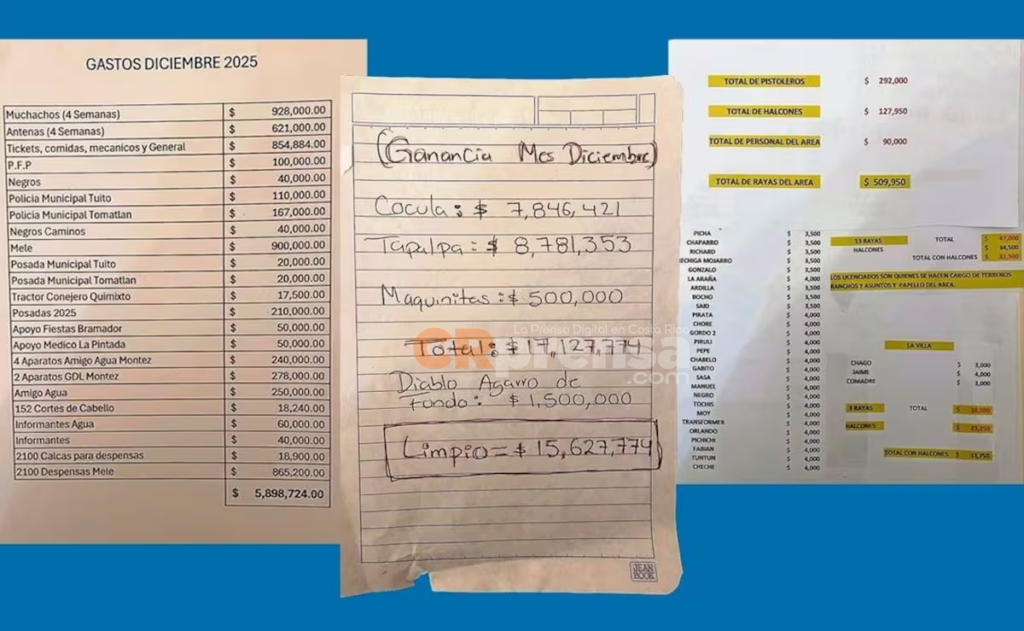 GASTOS DICIEMBRE 2025
Muchachos (4 Semanas) $ 928,000.00
Antenas (4 Semanas) $ 621,000.00
Tickets, comidas, mecanicos y General $ 854,884.00
P.F.P $ 100,000.00
Negros $ 40,000.00
Policia Municipal Tuito $ 110,000.00
Policia Municipal Tomatlan $ 167,000.00
Negros Caminos $ 40,000.00
Mele $ 900,000.00
Posada Municipal Tuito $ 20,000.00
Posada Municipal Tomatlan $ 20,000.00
Tractor Conejero Quimixto $ 17,500.00
Posadas 2025 $ 210,000.00
Apoyo Fiestas Bramador $ 50,000.00
Apoyo Medico La Pintada $ 50,000.00
4 Aparatos Amigo Agua Montez $ 240,000.00
2 Aparatos GDL Montez $ 278,000.00
Amigo Agua $ 250,000.00
152 Cortes de Cabello $ 18,240.00
Informantes Agua $ 60,000.00
Informantes $ 40,000.00
2100 Calcas para despensas $ 18,900.00
2100 Despensas Mele $ 865,200.00
$ 5,898,724.00
(Ganancia Mes Diciembre)
Cocula: $ 7,846,421
Tapalpa: $ 8,781,353
Maquinitas: $ 500,000
Total: $ 17,127,774
Diablo Agarro de
fondo: $ 1,500,000
Limpio = $ 15,627,774
JEAN
BOOK
La Prensa Digital en Costa Rica
CRprensa
.com
TOTAL DE PISTOLEROS $ 292,000
TOTAL DE HALCONES $ 127,950
TOTAL DE PERSONAL DEL AREA $ 90,000
TOTAL DE RAYAS DEL AREA $ 509,950
PICHA $ 3,500
CHAPARRO $ 3,500
RICHARD $ 3,500
RECHIGA MOJARRO $ 3,500
GONZALO $ 3,500
LA ARAÑA $ 4,000
ARDILLA $ 3,500
BOCHO $ 3,500
SAID $ 3,500
PIRATA $ 4,000
CHORE $ 4,000
GORDO 2 $ 4,000
PIRULI $ 4,000
PEPE $ 4,000
CHABELO $ 4,000
GABITO $ 4,000
SASA $ 4,000
MANUEL $ 4,000
NEGRO $ 4,000
TOCHIS $ 4,000
MOY $ 4,000
TRANSFORMER $ 4,000
ORLANDO $ 4,000
PICHICHI $ 4,000
FABIAN $ 4,000
TUNTUN $ 4,000
CHECHE $ 4,000
13 RAYAS TOTAL $ 47,000
HALCONES $ 34,500
TOTAL CON HALCONES $ 81,500
LOS LICENCIADOS SON QUIENES SE HACEN CARGO DE TERRENOS
RANCHOS Y ASUNTOS Y PAPELEO DEL AREA.
LA VILLA
CHAGO $ 3,000
JAIME $ 4,000
COMADRE $ 3,000
3 RAYAS TOTAL $ 10,000
HALCONES
TOTAL CON HALCONES